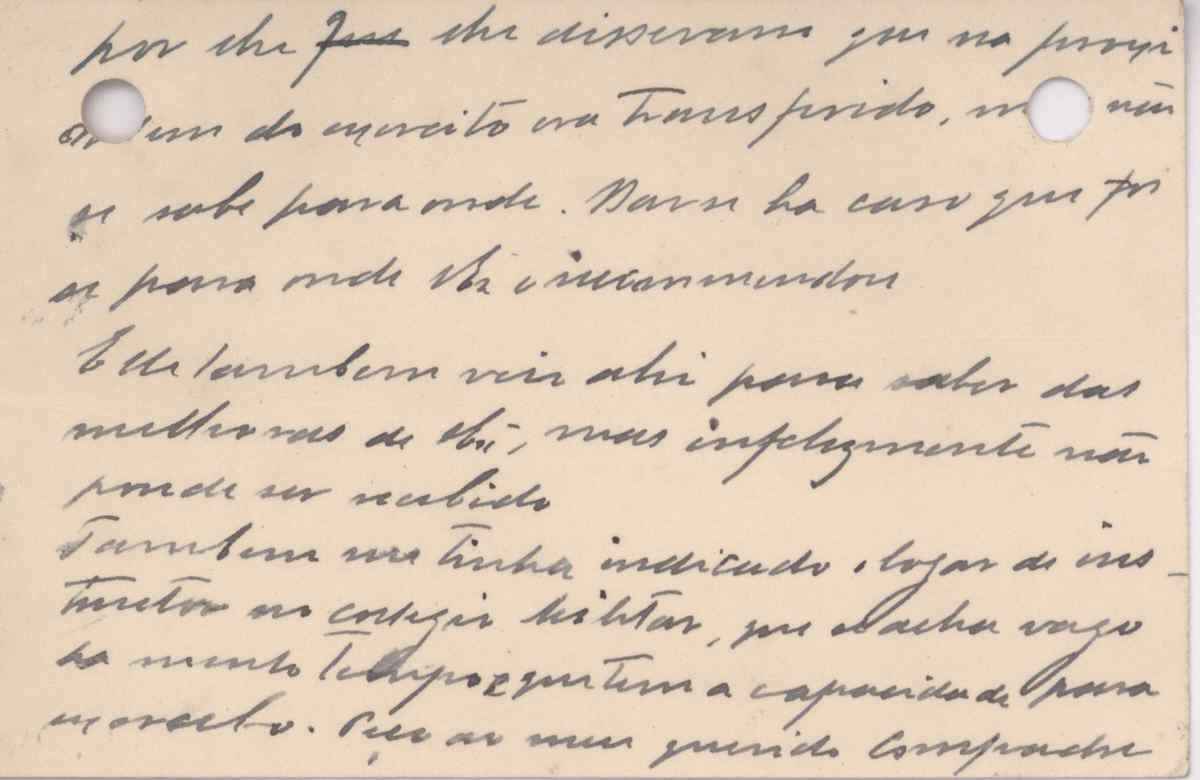 por elle que lhe disseram que na proxi
ordem do exercito era transferido, mas não
se sabe para onde. Dar-se ha caso que fos
se para onde o recommendou
Elle tambem veio ahi para saber das
melhoras de, mas infelizmente não
poude ser recebido
Tambem me tinha indicado o logar de ins-
tructor no collegio Militar, que se acha vago
ha muito tempo e que tem a capacidade para
exercel-o. Peço ao meu querido Compadre